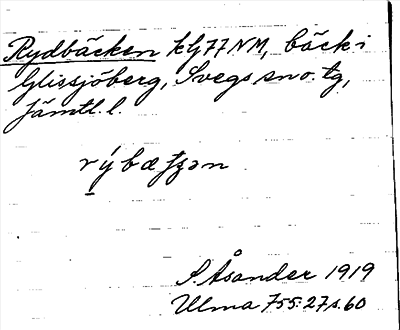 Rydbäcken kg77NM, bäck i
Glissjöberg, Svegs sno. tg,
Jämtl. l.
rýbætʒən
S. Åsander 1919
Ulma 755:27 s. 60